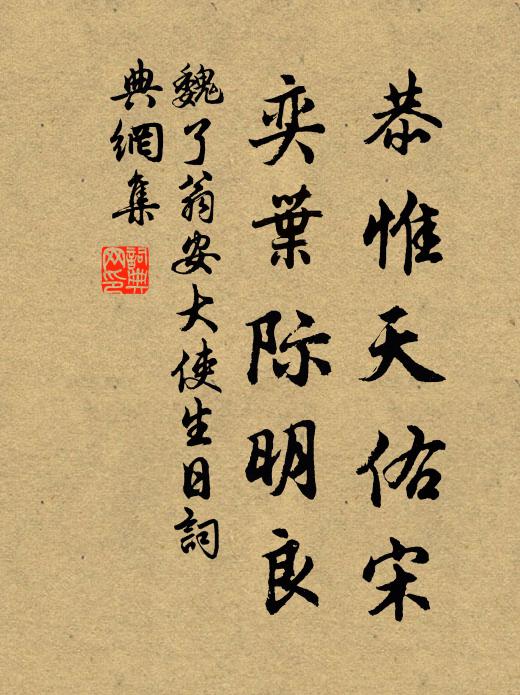 恭惟天佑宋
奕葉际明良
魏了翁安大使生日詞
典網集
詞典网印